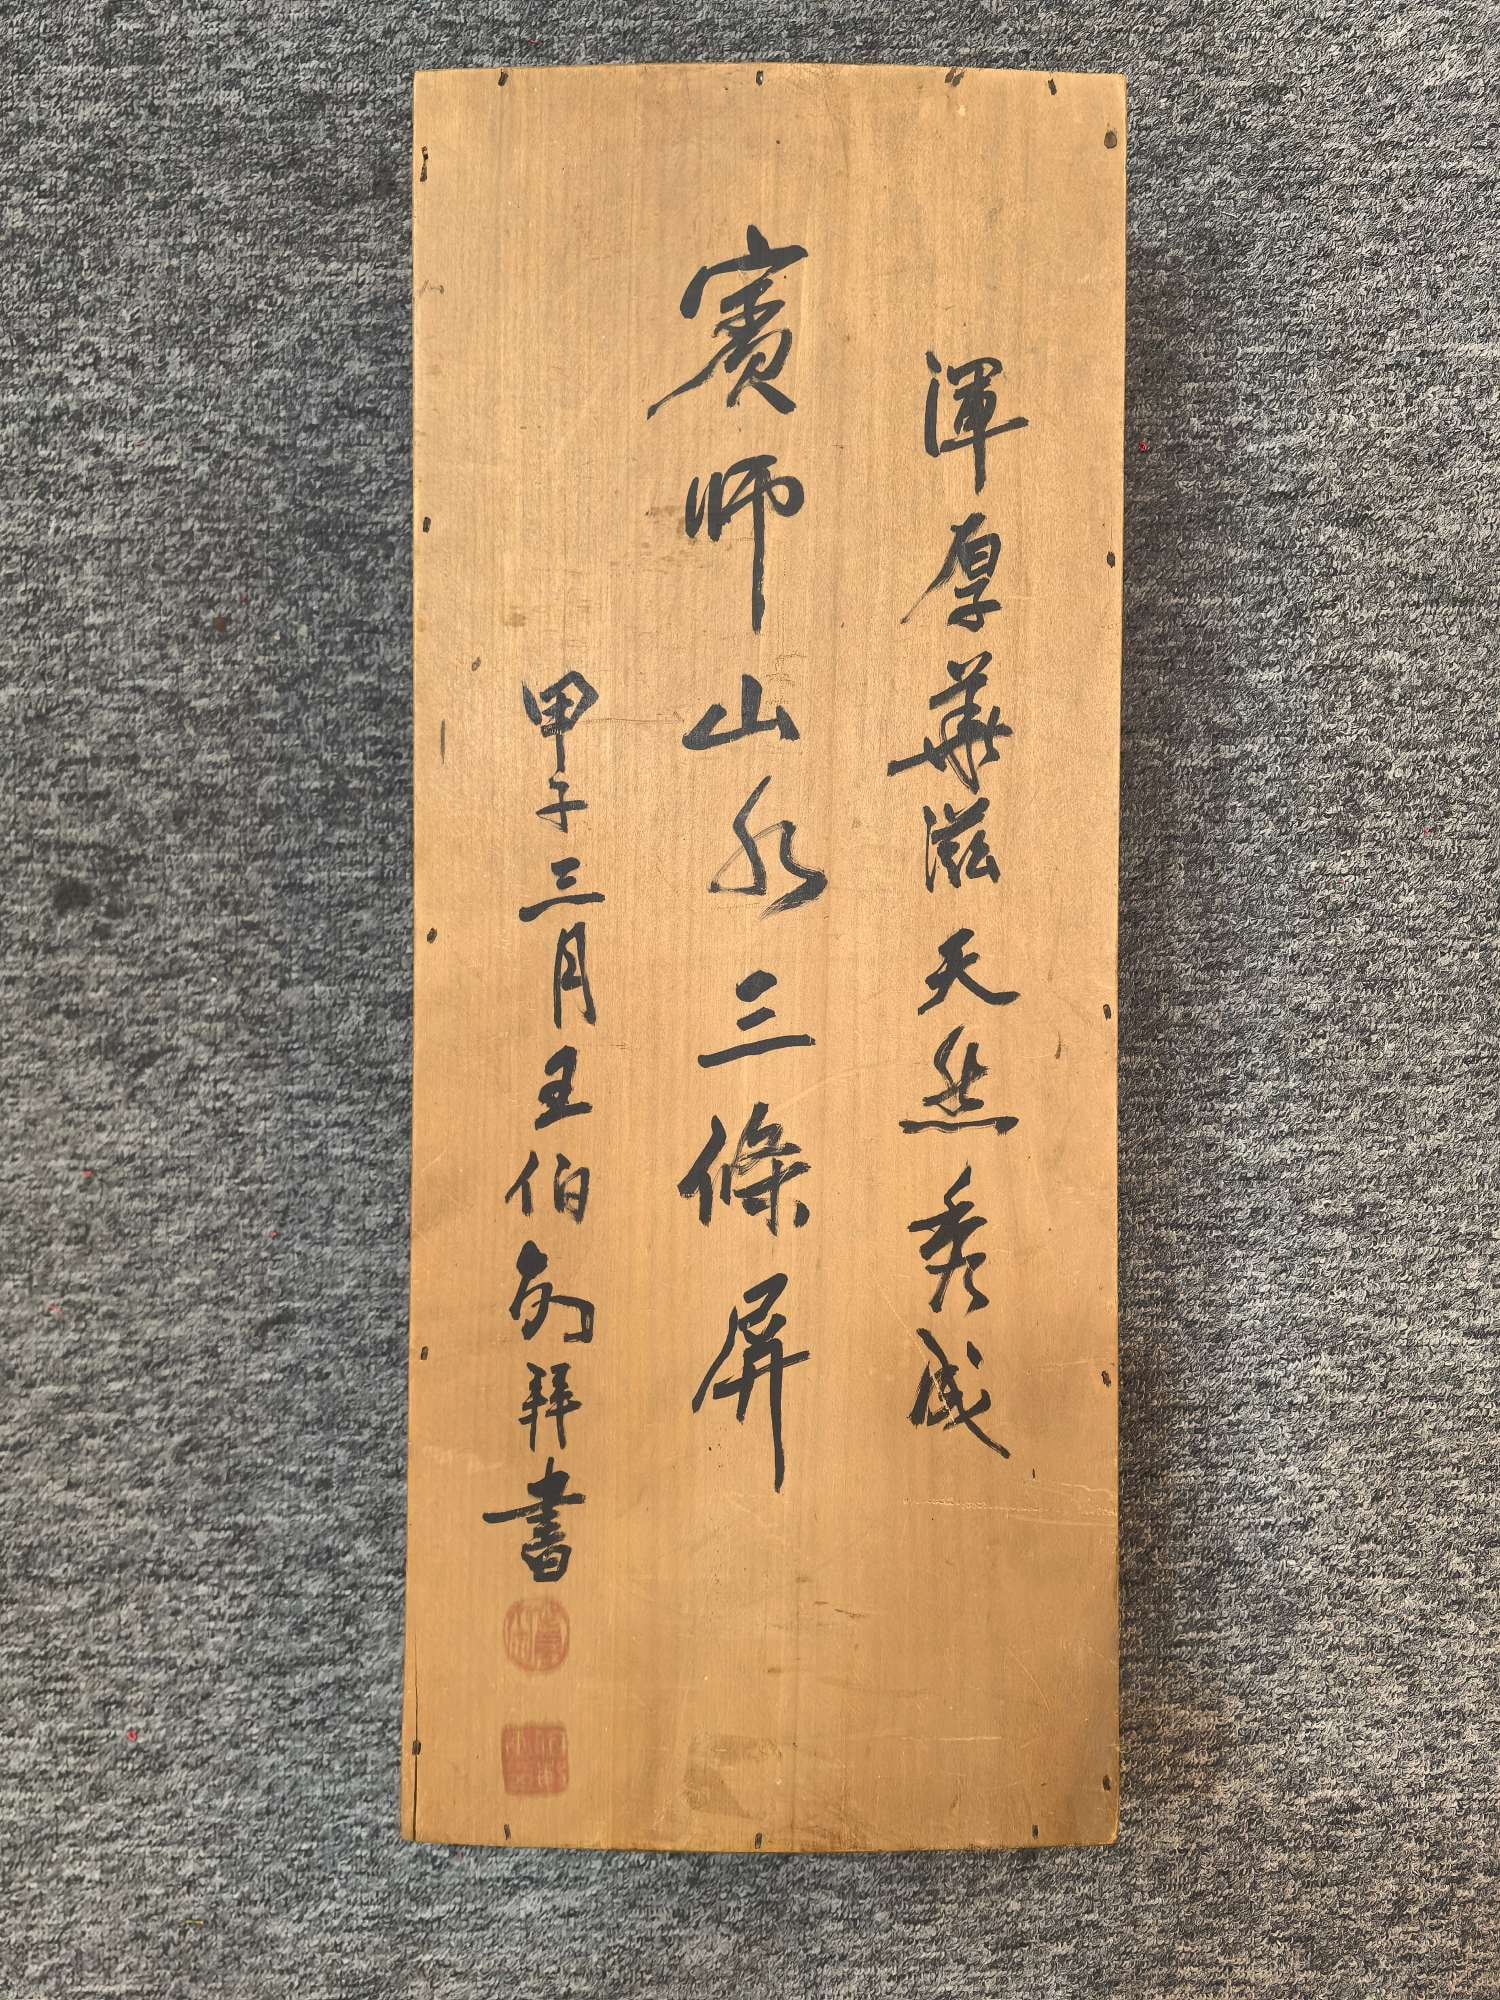 渾厚華滋天然秀成
賓師山水三條屏
甲子三月王伯敏拜書